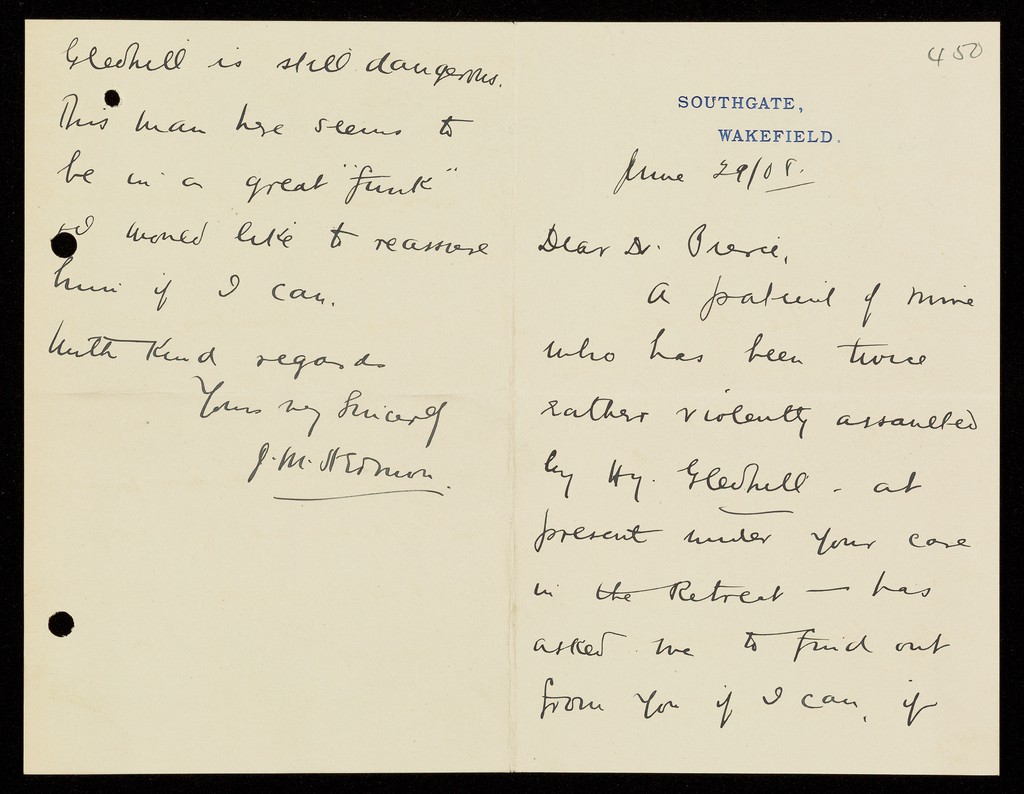 450
SOUTHGATE,
WAKEFIELD.
June 29/08.
Dear Dr. Pierce,
A patient of mine
who has been twice
rather violently assaulted
by Hy. Gledhill - at
present under your care
in the Retreat — has
asked me to find out
from you if I can, if
Gledhill is still dangerous.
This man here seems to
be in a great "funk"
I would like to reassure
him if I can.
With Kind regards
Yours very Sincerely
J. M.